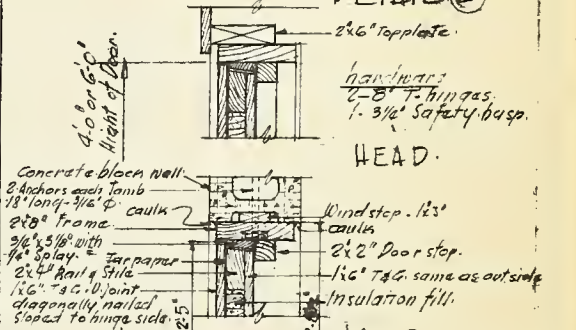 2"x6" Topplate.
4'-0" or 6'-0"
Hight of Door.
hardware
2-8" T-hinges.
1- 3/4" Safety hasp.
HEAD.
Concrete block wall.
2 Anchors each Jamb
18" long - 5/16" Φ.
caulk
2"x8" Frame
3/4" x 5/8" with
1/4" Splay.
Tarpaper
2"x4" Rail & Stile
1"x6" T & G. V. joint
diagonally nailed
Sloped to hinge side.
Windstop. 1"x3"
caulk
2"x2" Door stop.
1"x6" T&G. same as outside
Insulation fill.
2'-5"